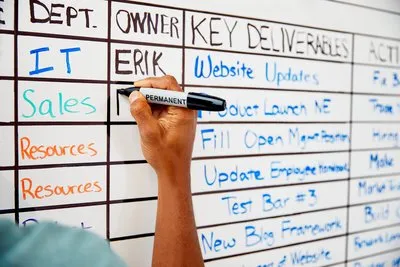 DEPT. OWNER KEY DELIVERABLES ACTI
IT ERIK Website Updates Fix B
Sales PERMANENT duct Launch NE
Resources Fill Open Mgmt Position Hiring
Resources Update Employee Handbook Make
Test Bar #3 Market
New Blog Framework Build
of Website